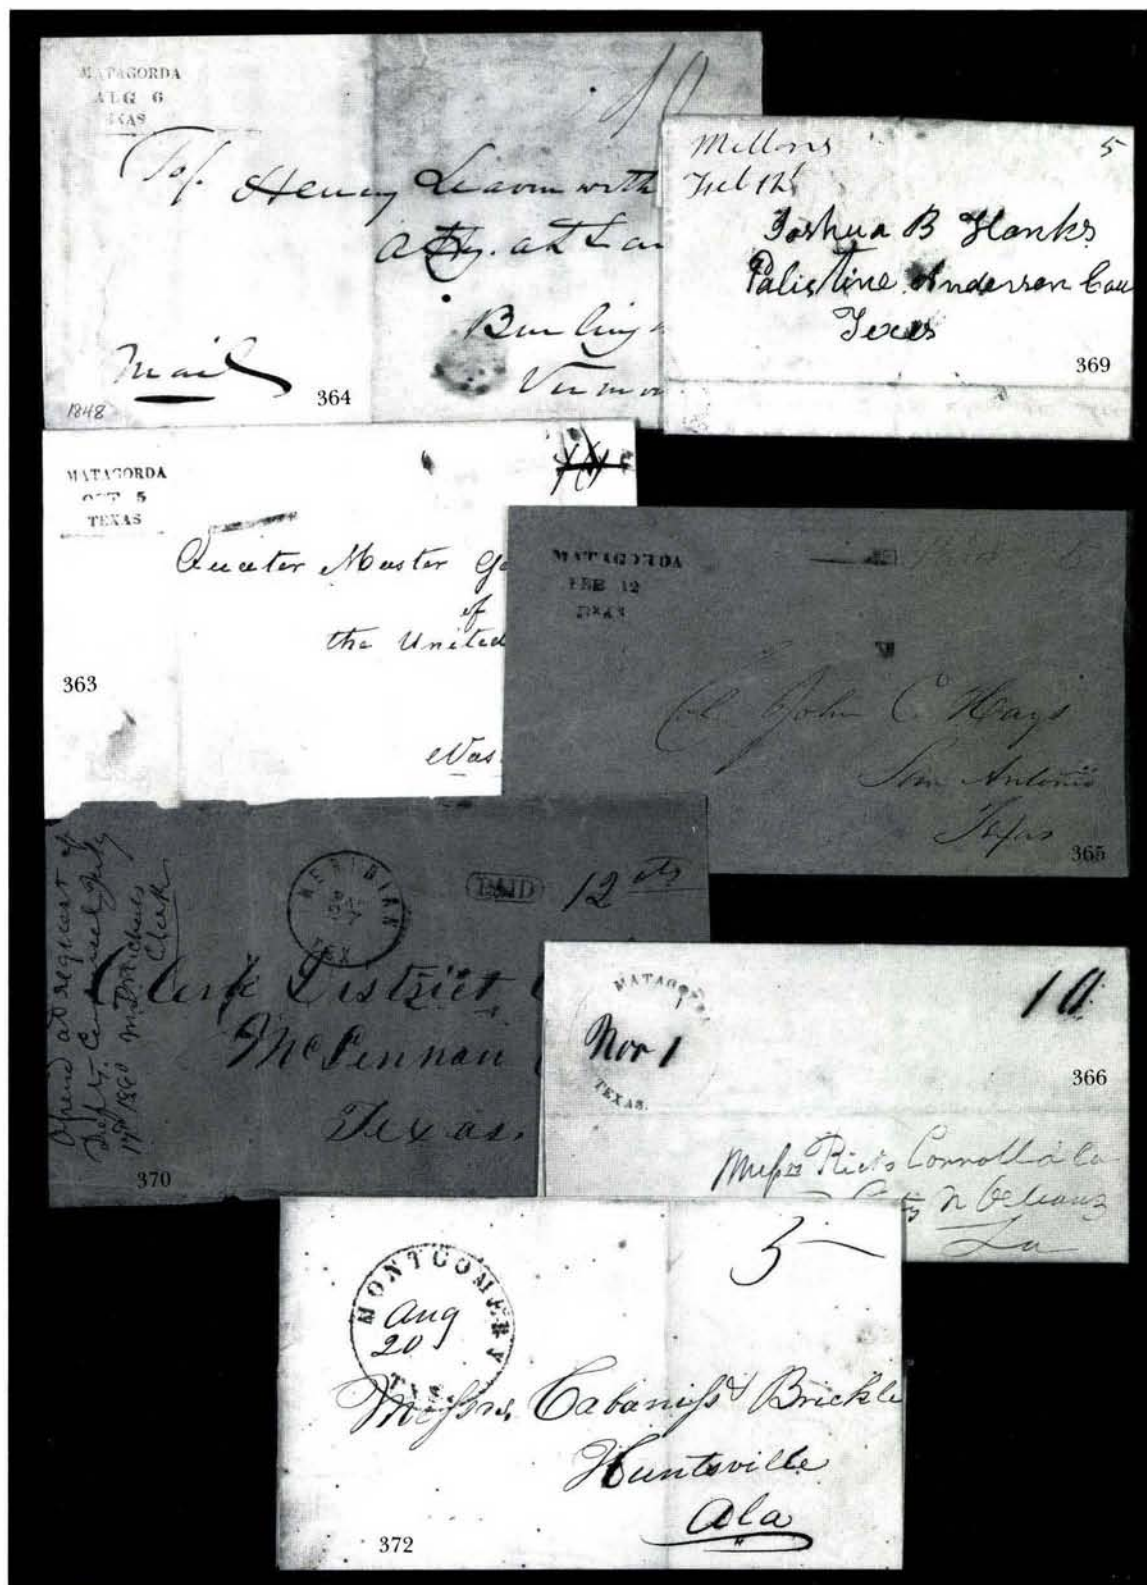 MATAGORDA
AUG 6
TEXAS
10
To/. Henry Leavenworth
Atty. at Law
Burling
Vermo
Mail
1848
364
Millons
5
Feb 12
Joshua B Hanks
Palistine Anderson Cou
Texas
369
MATAGORDA
OCT 5
TEXAS
10
Quater Master Ge
of
the United
Was
363
MATAGORDA
FEB 12
TEXAS
Col. John C. Hays
San Antonio
Texas
365
Opened at request of
Dist. Counsel July
17th 1860
Clerk
PAID
12 cts
Clerk District
McLennan
Texas.
370
MATAGORDA
Nov 1
TEXAS.
10
366
Messrs Ricks Connoll & Co
N Orleans
La
MONTGOMERY
Aug
20
TXS.
5
Messrs. Cabaniss & Brickle
Huntsville
Ala
372